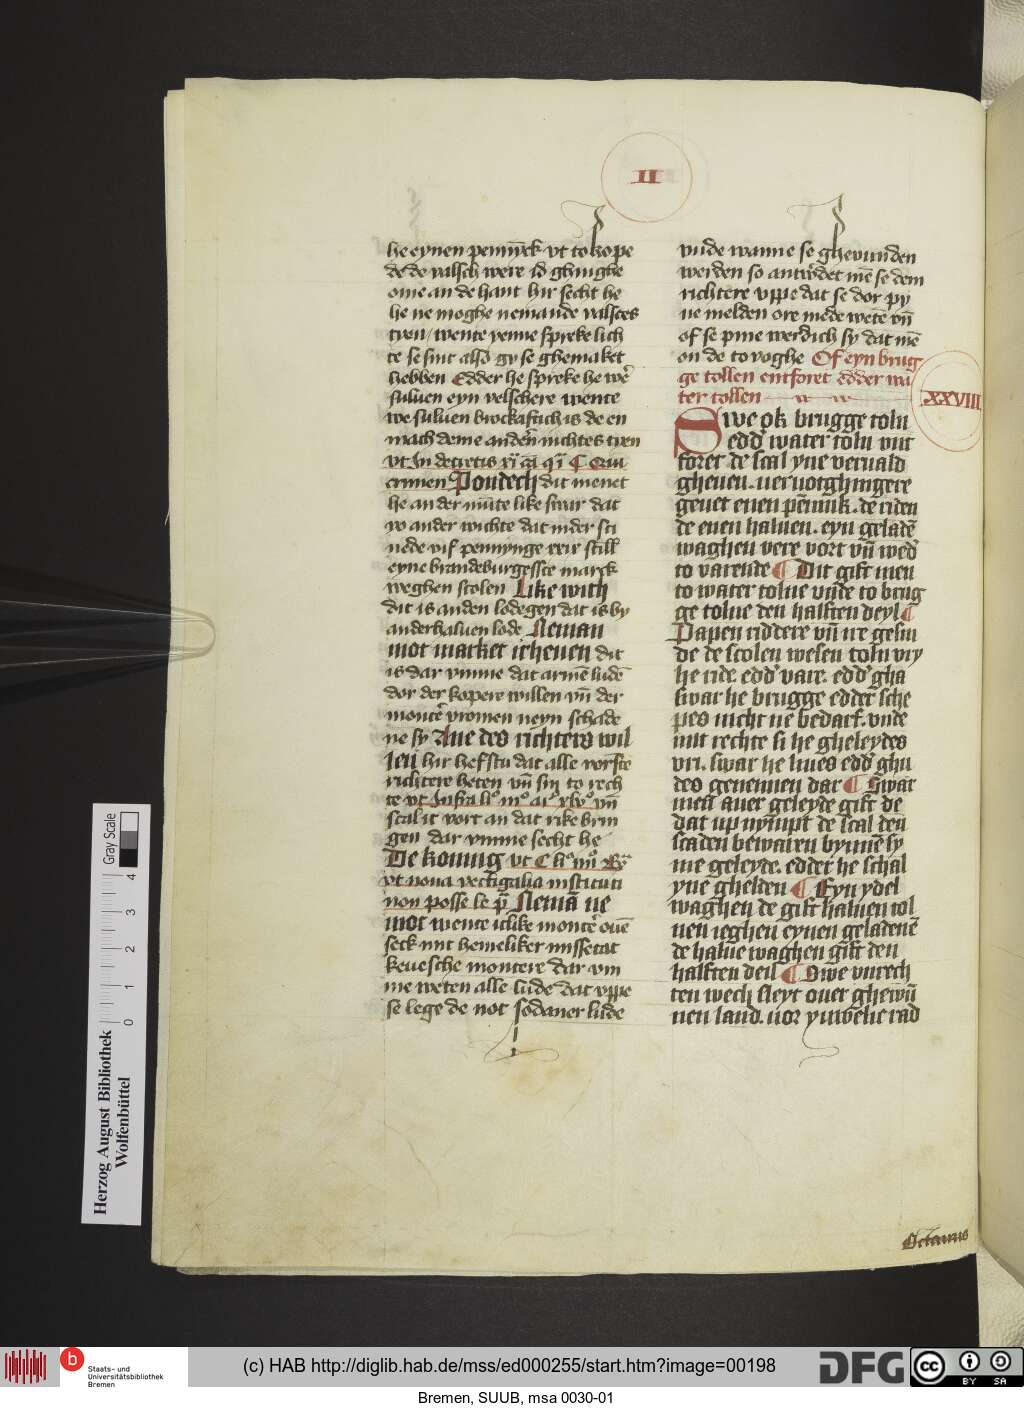 II
he eynen pennīck vt to kope
de de valsch were id ghinghe
ome an de hant hir secht he
he ne moghe nemande valsces
tyen / wente venne spreke lich
te se sint also gy se ghemaket
hebben Edder he spreke he wer̄
suluen eyn velschere wente
we suluen brockaftich is de en
mach deme andern̄ nichtes tyen
vt In decretis
crimen Pondech dit menet
he ander mūte like swar dat
vo ander wichte dat in der sti
nede vif pennynge veir still
eyne brandeburgessce marck
weghen scolen Like wich
dit is an den lodegen dat is by
anderhaluen lode Neman
mot market irheuen dit
is dar vmme dat armē lude
dor der kopere willen vn̄ der
monte vromen neyn schade
ne sy Ane des richters wil
len hir hefstu dat alle vorste
richtere heten vn̄ sin to rech
te vt Infra vn̄
scal it vort an dat rike brin
gen dar vmme secht he
De koning vt
vt noua vectigalia instituti
non posse Nemā ne
mot wente iclike monte ouē
seck mit hemeliker missetat
keuesche montere dar vm
me weten alle lude dat vppe
se lege de not sodaner lude
vnde wanne se gheuunden
werden so antwerdet mē se dem
richtere vppe dat se dor py
ne melden ore mede wetē vn̄
of se pine werdich sy dat mē
on de to voghe Of eyn brug
ge tollen entforet edder wa
ter tollen
XXVIII
Swe ok brugge toln
edd water toln unt
foret de scal yne veruald
gheuen . uer uotghingere
geuet enen pēnink . de riden
de enen haluen . eyn geladē
waghen vere vort vn̄ wed
to varende ¶ Dit gift men
to water tolne vnde to brug
ge tolne den halften deyl ¶
Papen riddere vn̄ ire gesin
de de scolen wesen toln vry
he ride . edd vare . edd gha
swar he brugge edder sche
pes nicht ne bedarf . vnde
mit rechte si he gheleydes
vri . swar he liues edd ghu
des geneinen dar ¶ Swar
men auer geleyde gift de
dat up nympt de scal den
scaden bewaren bynnē sy
me geleyde . edder he schal
yne ghelden ¶ Eyn ydel
waghen de gift haluen tol
nen ieghen eynen geladenē
de halue waghen gift den
halften deil ¶ Swe vnrech
ten wech sleyt ouer ghewū
nen land . uor yuwelic rad
Octauus
Gray Scale
0 1 2 3 4
Herzog August Bibliothek
Wolfenbüttel
b
Staats- und
Universitätsbibliothek
Bremen
(c) HAB http://diglib.hab.de/mss/ed000255/start.htm?image=00198
DFG
cc BY SA
Bremen, SUUB, msa 0030-01